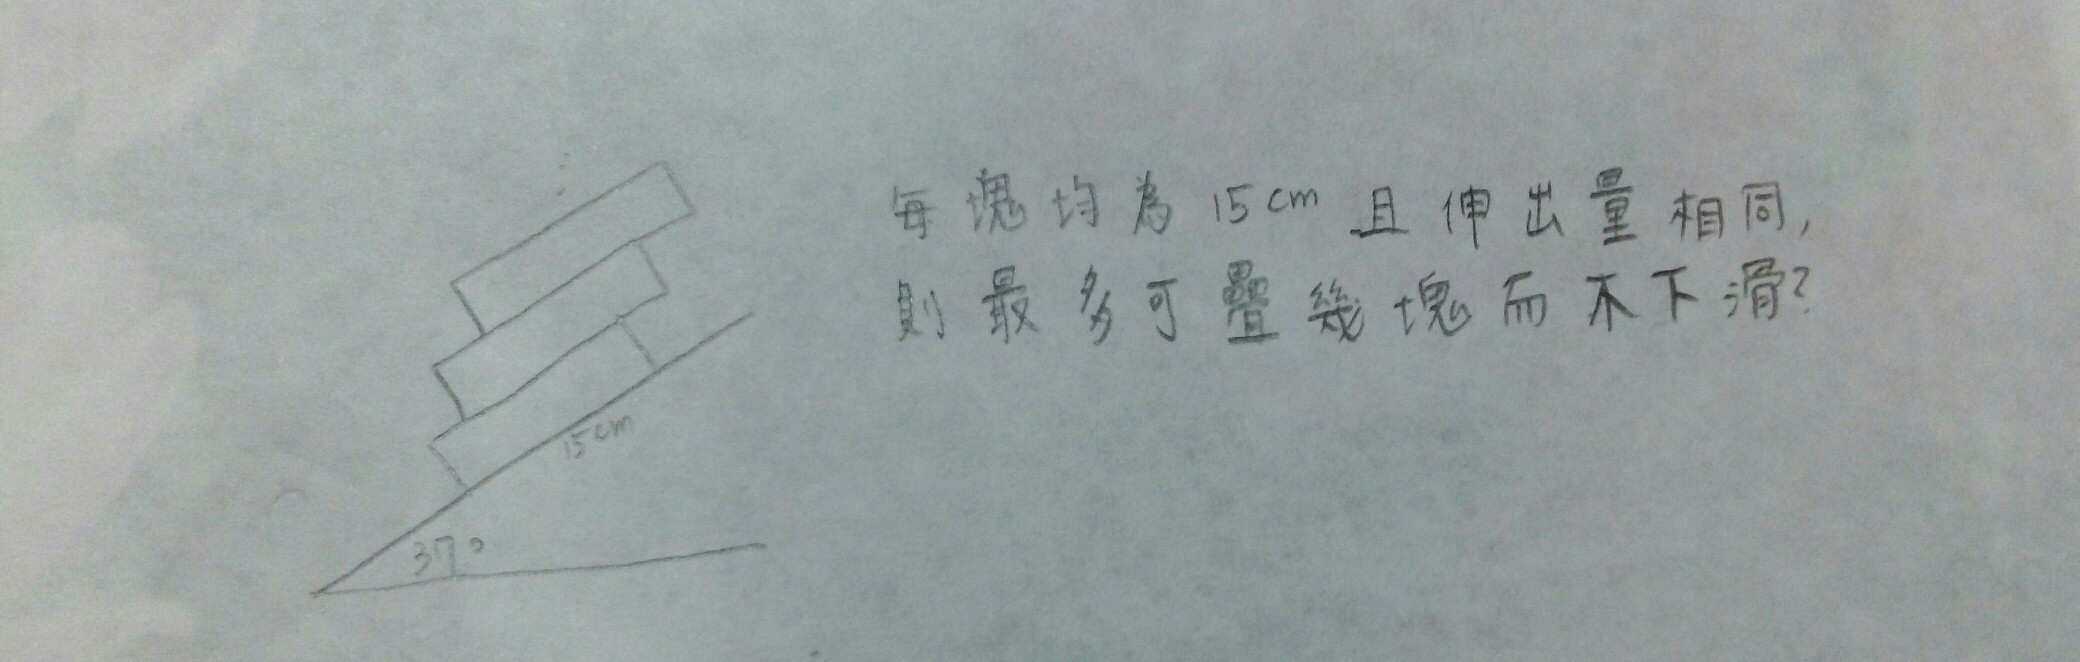 每塊均為15cm且伸出量相同,
則最多可疊幾塊而不下滑?
15cm
37°